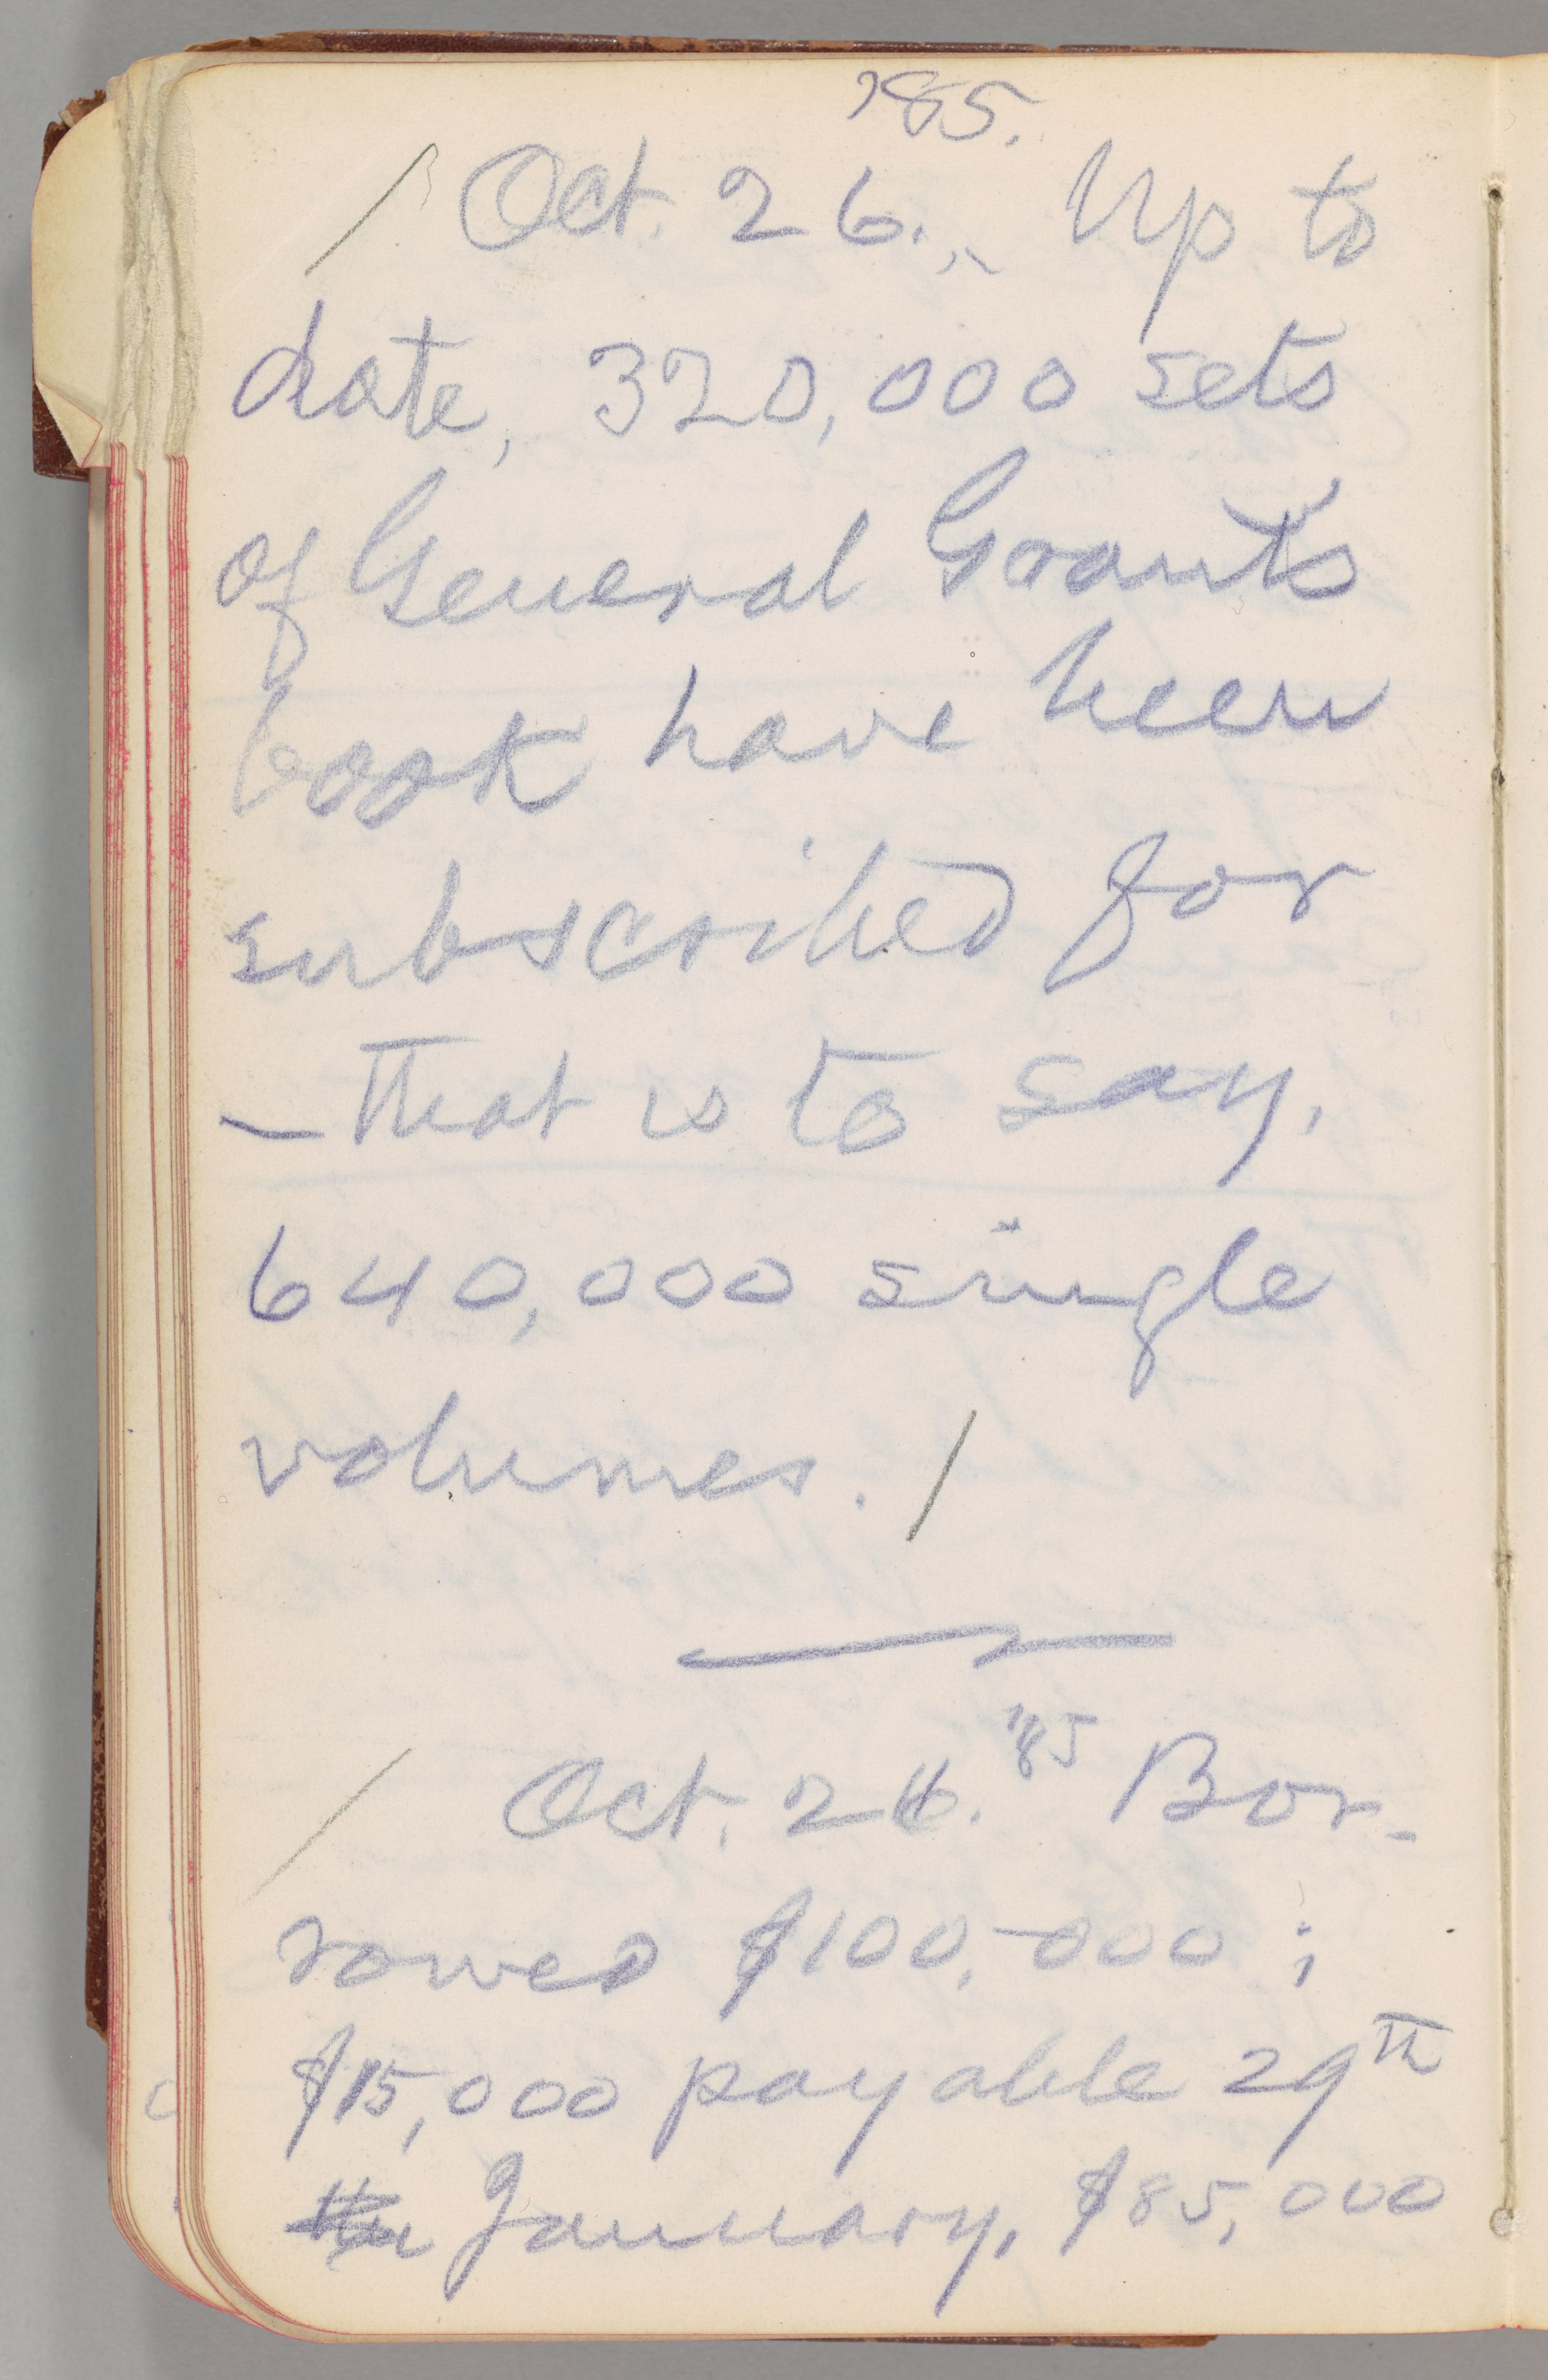 '85.
/ Oct. 26., Up to
date, 320,000 sets
of General Grant's
book have been
subscribed for
— that is to say,
640,000 single
volumes. /
/ Oct. 26. '85 Bor-
rowed $100,000;
$15,000 payable 29th
January, $85,000